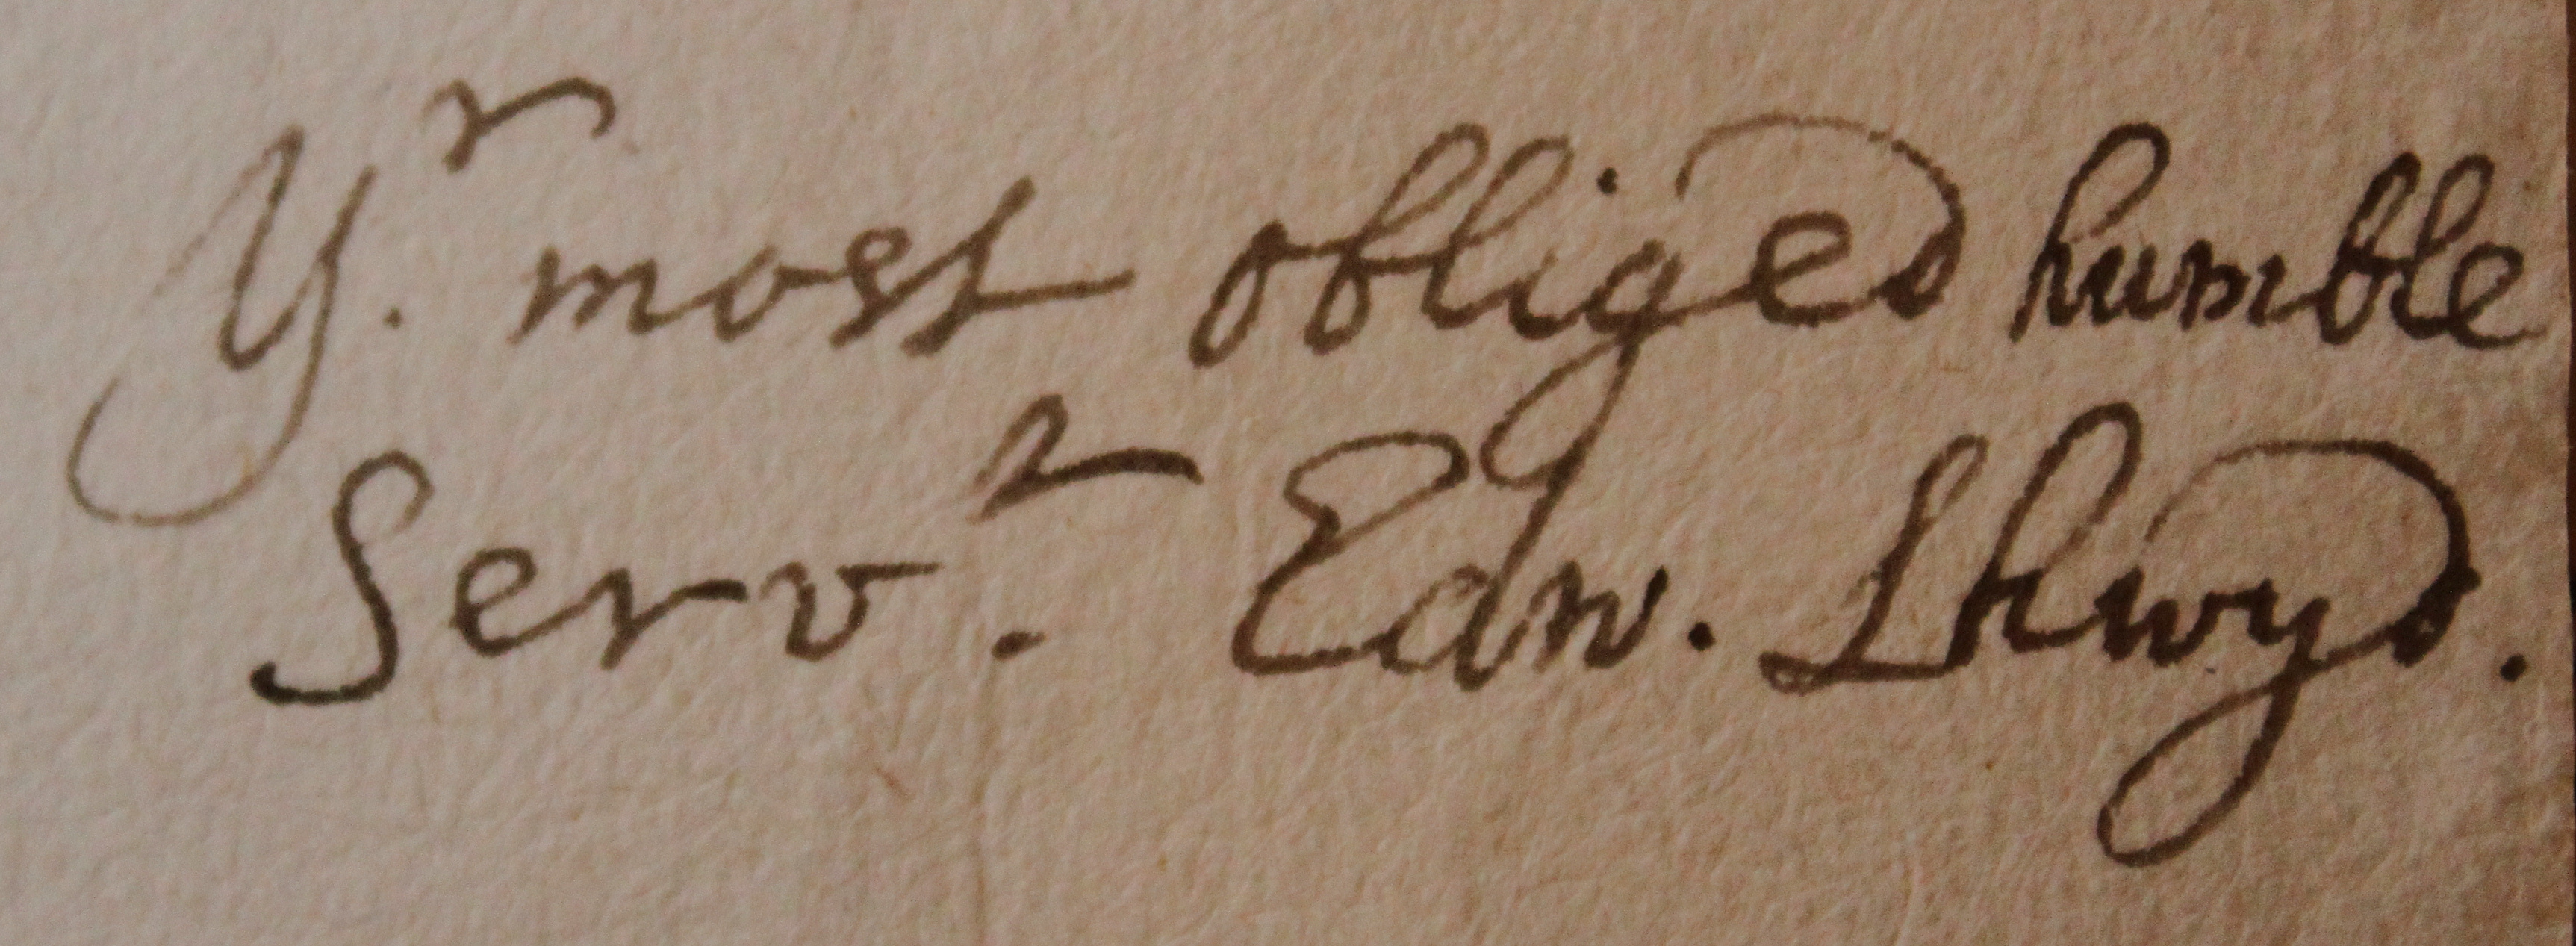 Yʳ. most obliged humble
Servᵗ. Edw. Lhwyd.